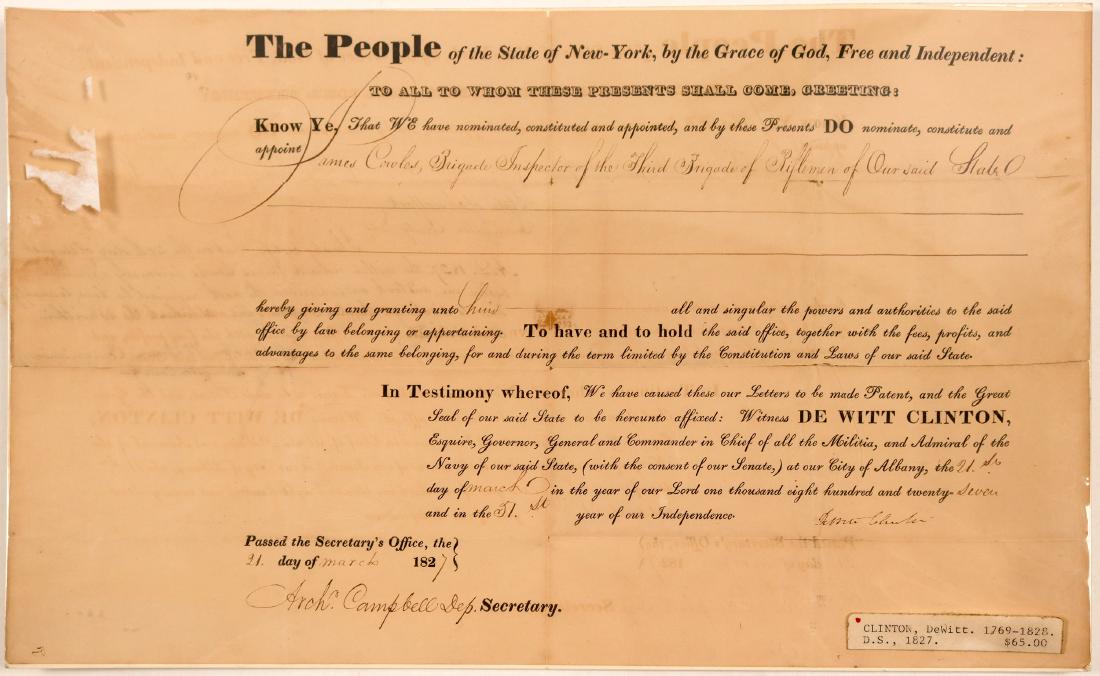 The People of the State of New-York, by the Grace of God, Free and Independent:
TO ALL TO WHOM THESE PRESENTS SHALL COME, GREETING:
Know Ye, That WE have nominated, constituted and appointed, and by these Presents DO nominate, constitute and
appoint James Cowles, Brigade Inspector of the Third Brigade of Riflemen of Our said State
hereby giving and granting unto him all and singular the powers and authorities to the said
office by law belonging or appertaining. To have and to hold the said office, together with the fees, profits, and
advantages to the same belonging, for and during the term limited by the Constitution and Laws of our said State.
In Testimony whereof, We have caused these our Letters to be made Patent, and the Great
Seal of our said State to be hereunto affixed: Witness DE WITT CLINTON,
Esquire, Governor, General and Commander in Chief of all the Militia, and Admiral of the
Navy of our said State, (with the consent of our Senate,) at our City of Albany, the 21.st
day of march in the year of our Lord one thousand eight hundred and twenty-seven
and in the 51.st year of our Independence.
DeWitt Clinton
Passed the Secretary's Office, the
21. day of march 1827
Archd. Campbell Dep. Secretary.
CLINTON, DeWitt. 1769-1828.
D.S., 1827. $65.00